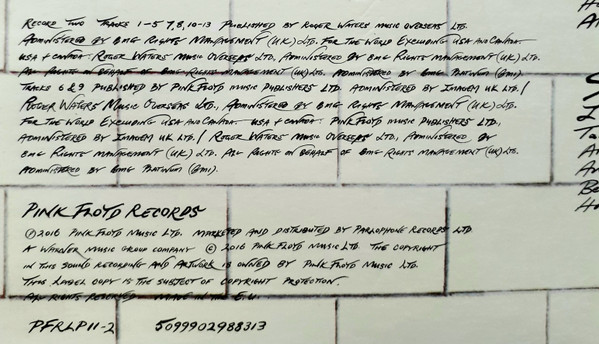 Record Two Tracks 1-5 7, 8, 10-13 Published by Roger Waters Music Overseas Ltd.
Administered by BMG Rights Management (UK) Ltd. For the World Excluding USA and Canada.
USA & Canada Roger Waters Music Overseas Ltd., Administered by BMG Rights Management (UK) Ltd.
All Rights in Behalf of BMG Rights Management (UK) Ltd. Administered by BMG Platinum (BMI).
Tracks 6 & 9 Published by Pink Floyd Music Publishers Ltd. Administered by Imagem UK Ltd. /
Roger Waters Music Overseas Ltd., Administered by BMG Rights Management (UK) Ltd.
For the World Excluding USA and Canada. USA & Canada Pink Floyd Music Publishers Ltd.,
Administered by Imagem UK Ltd. / Roger Waters Music Overseas Ltd., Administered by
BMG Rights Management (UK) Ltd. All Rights in Behalf of BMG Rights Management (UK) Ltd.
Administered by BMG Platinum (BMI).
Pink Floyd Records
℗ 2016 Pink Floyd Music Ltd. Marketed and distributed by Parlophone Records Ltd
A Warner Music Group Company © 2016 Pink Floyd Music Ltd. The copyright
in this sound recording and artwork is owned by Pink Floyd Music Ltd.
This label copy is the subject of copyright protection.
All rights reserved. Made in the E.U.
PFRLP11-2 5099902988313